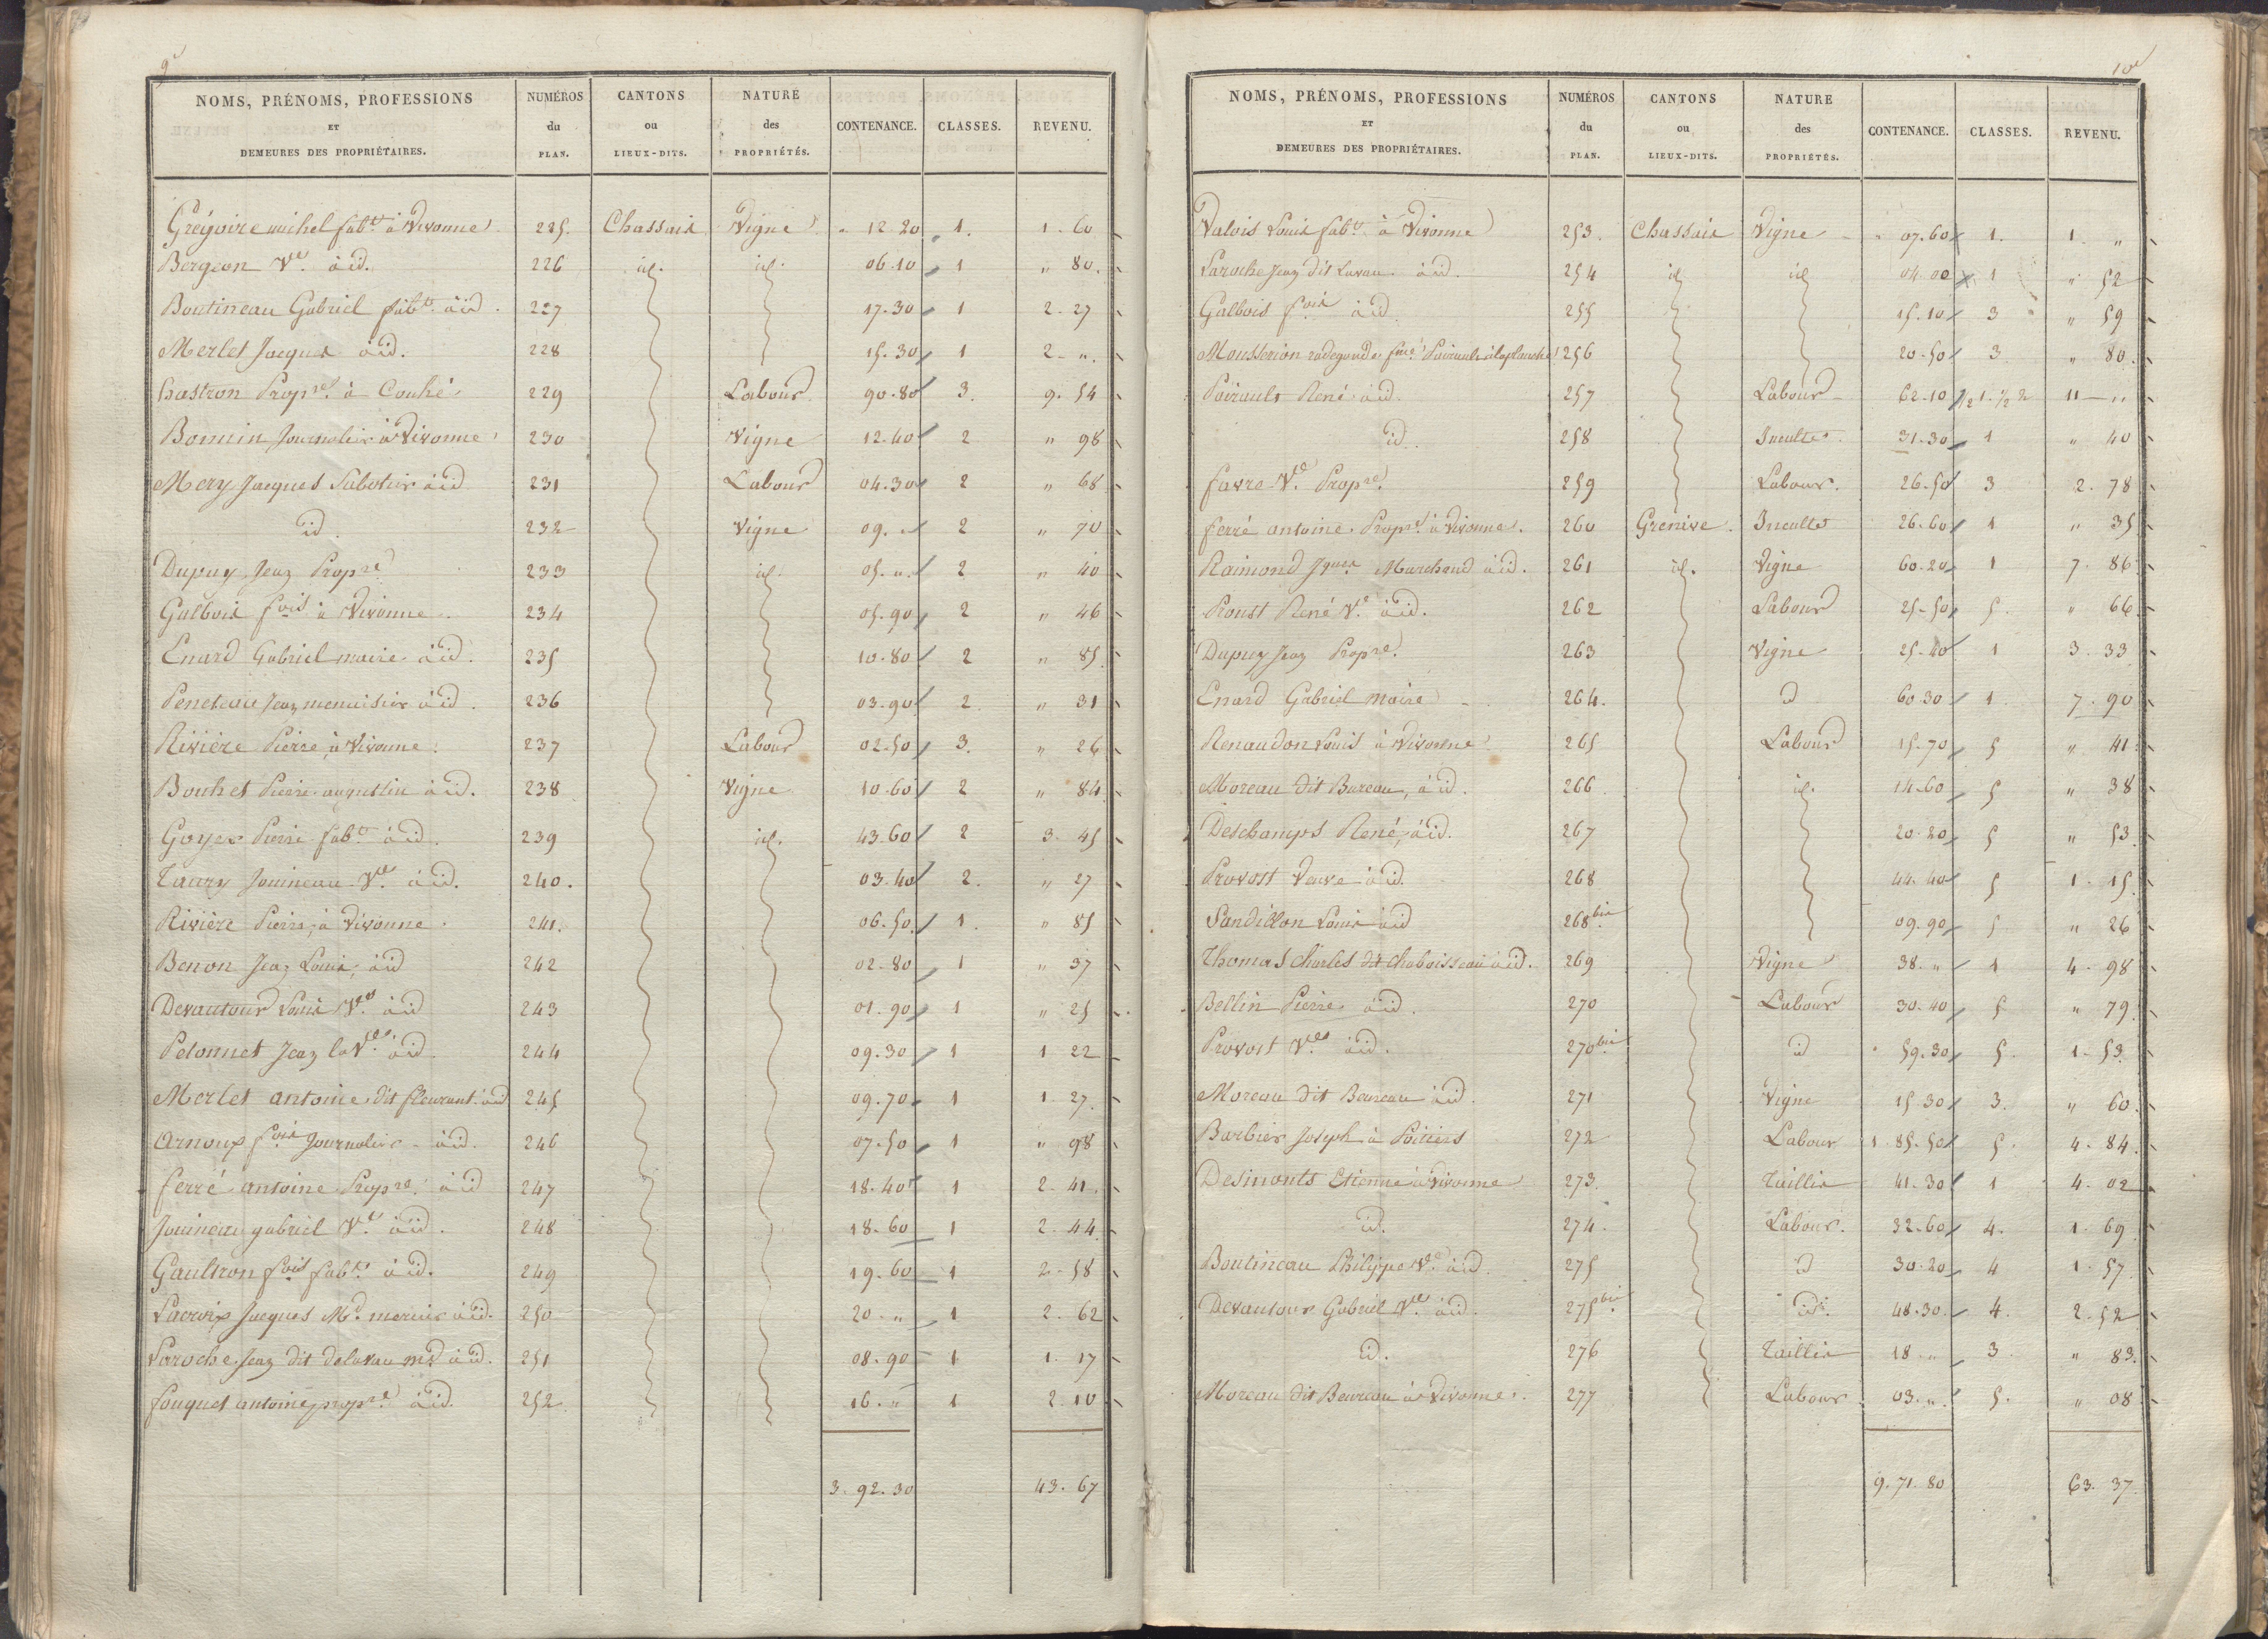 9e
NOMS, PRÉNOMS, PROFESSIONS ET DEMEURES DES PROPRIÉTAIRES. NUMÉROS du PLAN. CANTONS ou LIEUX-DITS. NATURE des PROPRIÉTÉS. CONTENANCE. CLASSES. REVENU.
Grégoire michel fabt. à Vivonne 225. Chassaix Vigne " 12.20 1. 1. 60
Bergeon Ve. à id. 226 id. id. 06.10 1 " 80.
Boutineau Gabriel fabt. à id. 227 17.30 1 2. 27
Merlet Jacques à id. 228 15.30 1 2 - ".
Chastron Propre. à Couhé 229 Labour 90.80 3. 9. 54
Bonnin Journalier à Vivonne 230 Vigne 12.40 2 " 98
Mery Jacques Sabotier à id 231 Labour 04.30 2 " 68
id. 232 Vigne 09. " 2 " 70
Dupuy Jean Propre 233 id. 05. ". 2 " 40
Galbois fois à Vivonne. 234 05.90 2 " 46
Enard Gabriel maire à id. 235 10.80 2 " 85
Peneteau Jean menuisier à id. 236 03.90 2 " 31
Rivière Pierre, à Vivonne. 237 Labour 02.50 3. " 26
Bouhet Pierre augustin à id. 238 Vigne 10.60 2 " 84
Goyer Pierre fabt. à id. 239 id. 43.60 2 3. 45
Taury Jouineau Ve. à id. 240. 03.40 2. " 27
Rivière Pierre, à Vivonne. 241. 06.50 1. " 85
Benon Jean Louis, à id 242 02.80 1 " 37
Devautour Louis Ve. à id 243 01.90 1 " 25
Petonnet Jean la Ve. à id. 244 09.30 1 1 22
Merlet antoine dit fleurant à id 245 09.70 1 1. 27.
Arnoux fois Journalier à id. 246 07.50 1 " 98
ferré antoine Propre. à id 247 18.40 1 2. 41.
Jouineau gabriel Ve. à id. 248 18.60 1 2. 44.
Gaultron fois fabt. à id. 249 19.60 1 2 - 58
Lacroix Jacques Md. mercier à id. 250 20. " 1 2. 62
Laroche Jean dit delavau md à id. 251 08.90 1 1. 17
fouquet antoine, propre. à id. 252. 16. " 1 2. 10
3. 92. 30 43. 67
10e
NOMS, PRÉNOMS, PROFESSIONS ET DEMEURES DES PROPRIÉTAIRES. NUMÉROS du PLAN. CANTONS ou LIEUX-DITS. NATURE des PROPRIÉTÉS. CONTENANCE. CLASSES. REVENU.
Valois Louis fabt. à Vivonne 253. Chassaix Vigne " 07.60 1. 1. "
Laroche Jean dit Lavau. à id. 254 id id 04.00 1 " 52
Galbois fois à id. 255 15.10 3 " 59
Mousserion radegonde 256 20.50 3 " 80.
Poirault René à id. 257 Labour 62.10 1/2 1. 1/2 2 11 - "
id. 258 Incultes. 31.30 1 " 40
favre Ve. Propre. 259 Labour. 26.50 3 2. 78
ferré antoine Propre. à Vivonne. 260 Grenive. Incultes 26.60 1 " 35
Raimond Jques Marchand à id. 261 id. Vigne 60.20 1 7. 86
Proust René Ve. à id. 262 Labour 25.50 5. " 66.
Dupuy Jean Propre. 263 Vigne 25.40 1 3. 33
Enard Gabriel maire 264. id 60.30 1 7. 90
Renaudon Louis à Vivonne 265 Labour 15.70 5 " 41.
Moreau dit Bureau, à id. 266. id. 14.60 5 " 38
Deschamps René, à id. 267 20.20 5 " 53.
Provost Veuve à id. 268 44.40 5 1. 15.
Sandillon Louis à id 268 bis 09.90 5 " 26
Thomas Charles dit chaboisseau à id. 269 Vigne 38. " 1 4. 98
Bellin Pierre à id. 270 Labour 30.40 5 " 79.
Provost Ve. à id. 270 bis id 59.30 5. 1. 53.
Moreau dit Bureau à id. 271 Vigne 15.30 3. " 60.
Barbier Joseph à Poitiers 272 Labour 1.85.50 5. 4. 84.
Desimonts Etienne à Vivonne 273. Taillis 41.30 1 4. 02
id. 274. Labour. 32.60 4. 1. 69
Boutineau Philippe Ve. à id. 275 id 30.20 4 1. 57.
Devautour Gabriel Ve. à id. 275 bis id. 48.30. 4. 2. 52
id. 276 Taillis 18. " 3. " 83.
Moreau dit Bureau à Vivonne. 277 Labour 03. ". 5. " 08
9. 71. 80 63. 37.